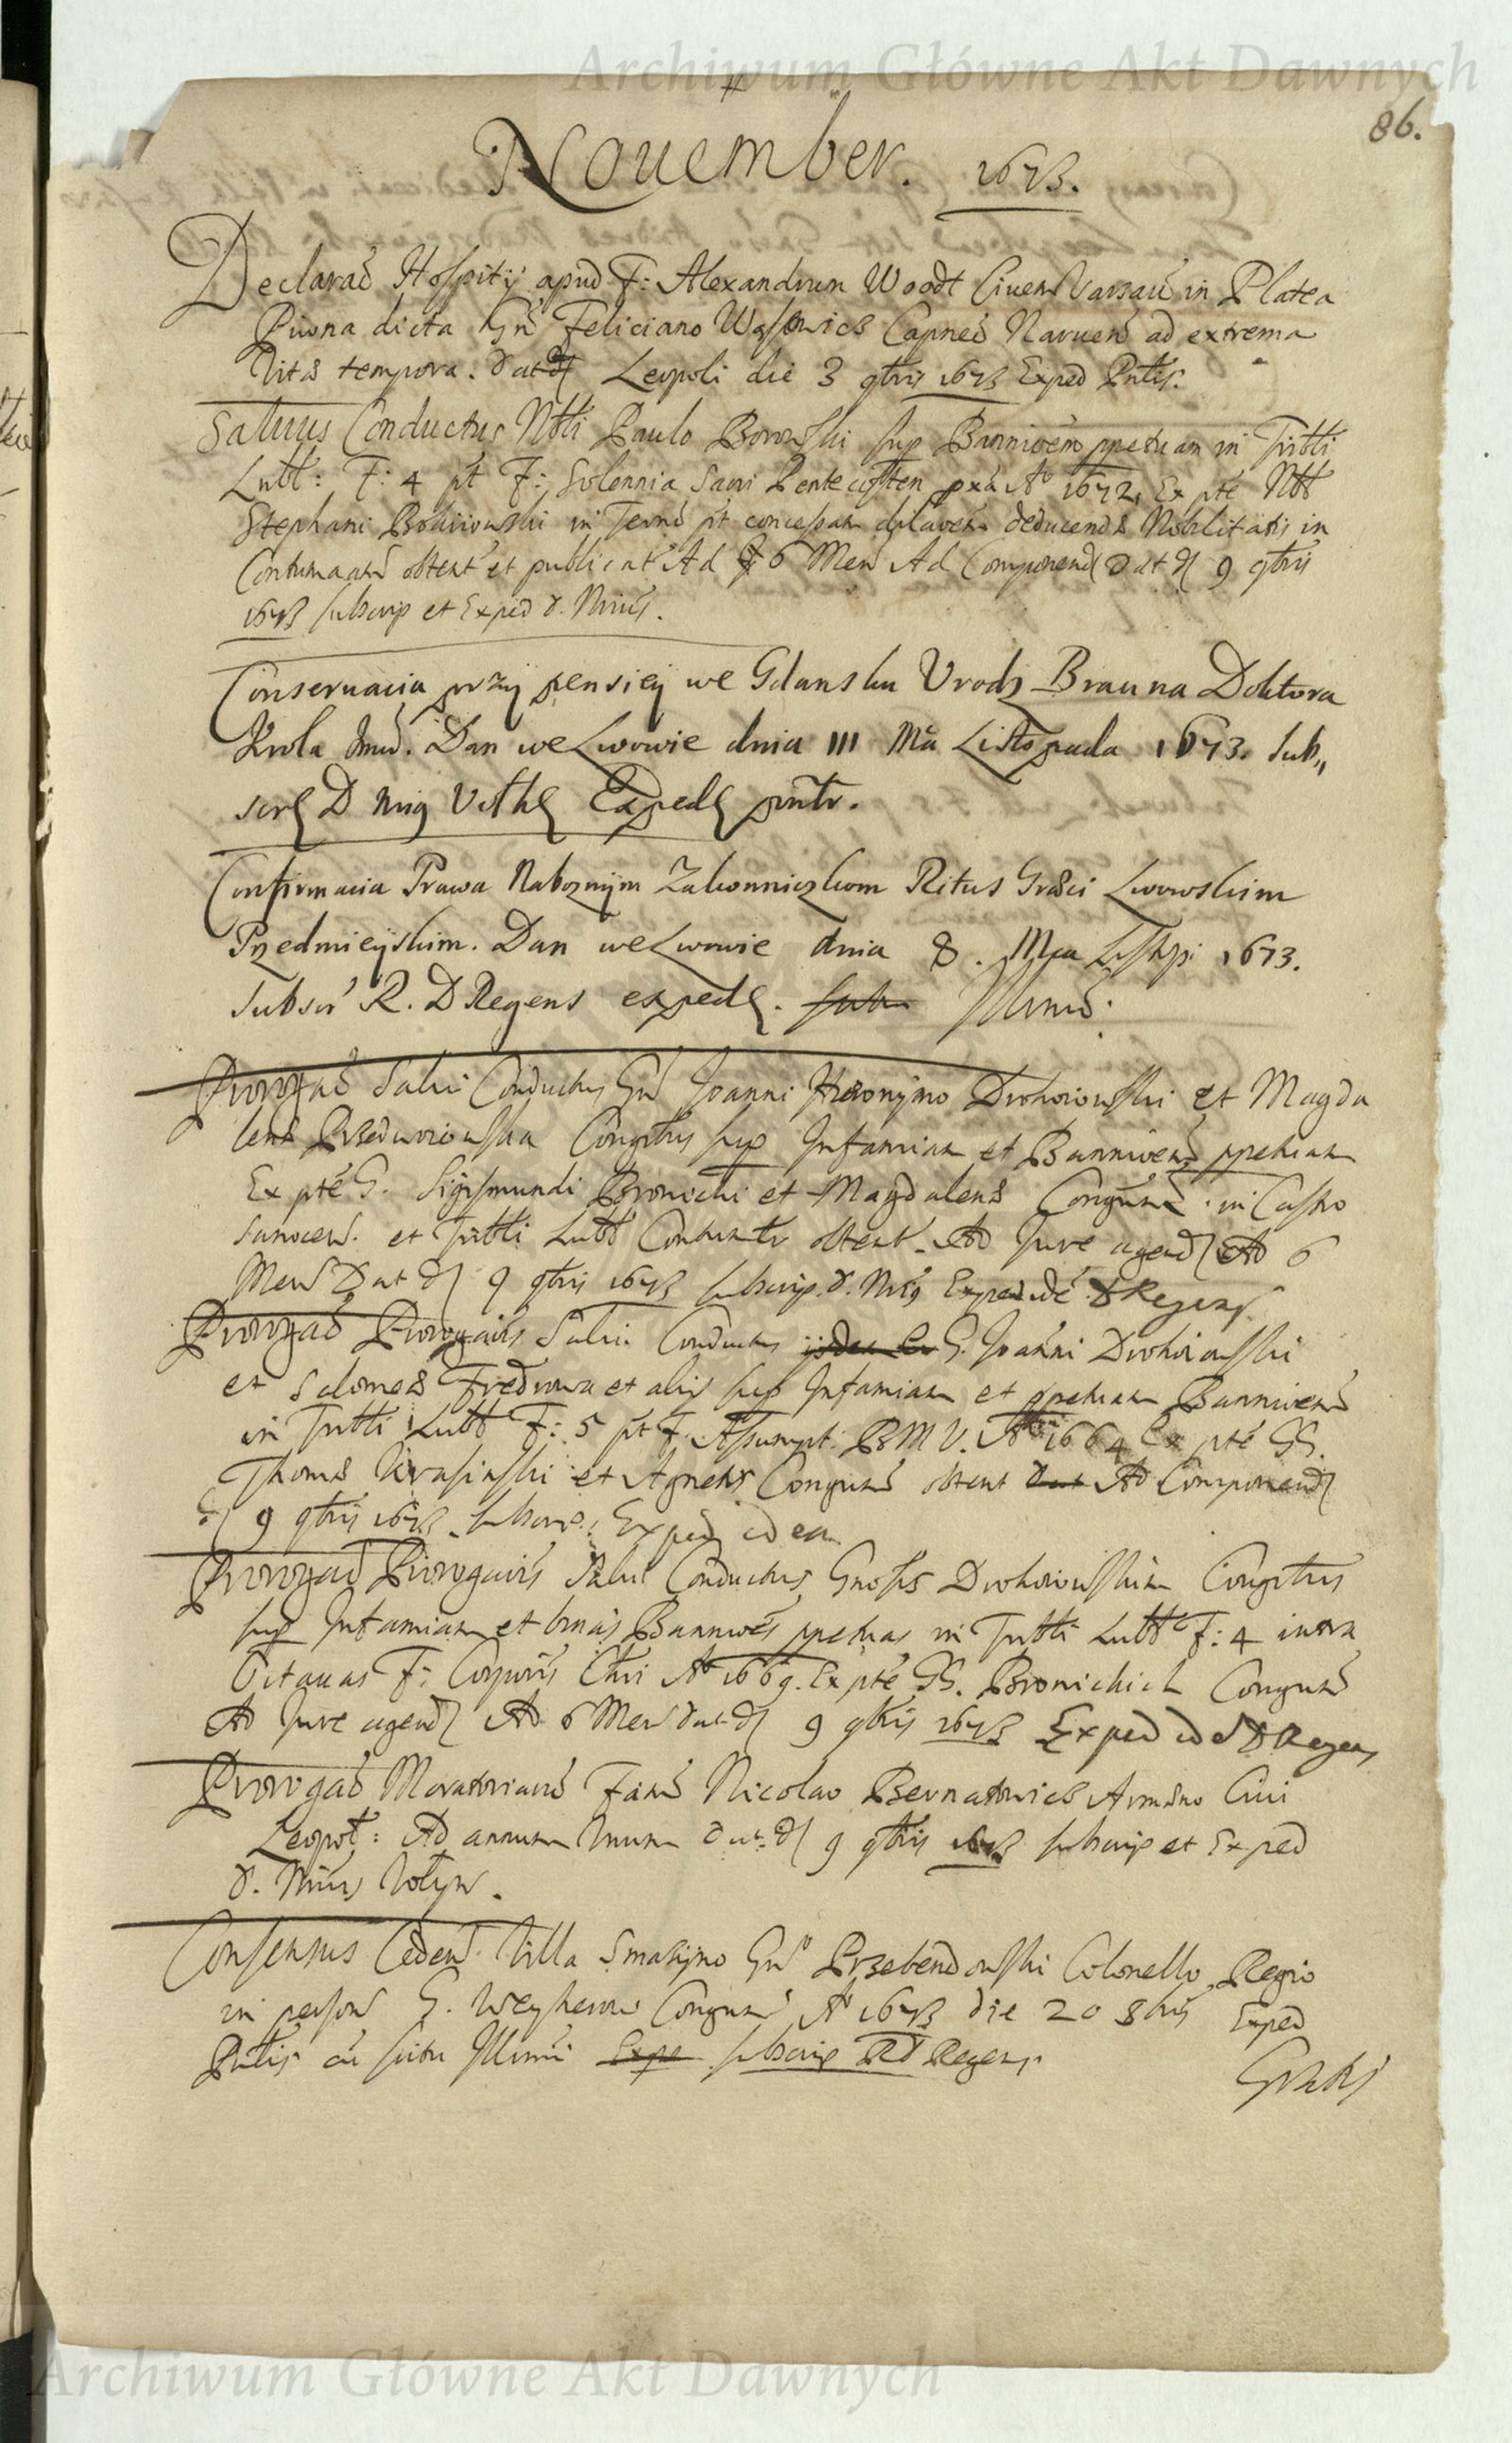 Archiwum Główne Akt Dawnych
86.
Nouember. 1673.
Declarao Hospitij apud F: Alexandrum Woodt Ciuem Varsau in Platea
Piwna dicta Gn Feliciano Wąsowicz Capneo Naruen ad extrema
Vitae tempora. Dat Leopoli die 3 9bris 1673 Exped Pntis.
Saluus Conductus Nbli Paulo Borowski sup Banniōem ppetuam in Tribli
Lubl: F: 4 pt F: Solennia Sacri Pentecosten pxa Aº 1672, Ex pte Nbl
Stephani in Termo pt concessam dilaoem deducendae Nobilitatis in
Contumaciam obtent et publicat Ad 6 Men Ad Componend Dat d 9 9bris
1673 subscrip et Exped D. Minis.
Conseruacia przy pensiey we Gdansku Vrodz Brauna Doktora
Krola Jmci. Dan we Lwowie dnia III Mca Listopada 1673. Sub„
scr D Exped pntr.
Confirmacia Prawa Naboznym Zakonniczkom Ritus Graeci Lwowskim
Przedmieyskim. Dan we Lwowie dnia 8. Mca Listopi 1673.
Subscr R. D Regens exped.
Prorogao Salui Conductus Gn Joanni Hieronymo Drohoiowski et Magda
lenae Conjbus sup Infamiam et Banniōem ppetuam
Ex pte G. Sigismundi Bronicki et Magdalenae Congum in Castro
Sanocen. et Tribli Lubl obtent. Ad Jure agend Ad 6
Men Dat d 9 9bris 1673 subscrip. D. Exped D Regens
Prorogao Prorogaōis Salui Conductus G. Joanni Drohoiowski
et Salomeae Fredrowa et alijs sup Infamiam et ppetuam Banniōem
in Tribli Lubl F: 5 pt F. Assumpt. B M V. Aº 1664 Ex pte GG.
Thomae et Agnetis Congum obtent Ad Componend
d 9 9bris 1673. subscrip. Exped idem
Prorogao Prorogaōis Salui Conductus Gnosis Drohoiowskim Conjbus
sup Infamiam et binas Banniōes ppetuas in Tribli Lubl F: 4 intra
Octauas F: Corporis Chri Aº 1669. Ex pte GG. Bronickich Congum
Ad Jure agend Ad 6 Men Dat d 9 9bris 1673 Exped D Regens
Prorogao Moratoriarum Fam Nicolao Bernatowicz Armeno Ciui
Leopol: Ad annum Unum Dat. d 9 9bris 1673 subscrip et Exped
D.
Consensus Cedend Villa Smazyno Gn Przebendowski Colonello Regio
in person G. Weyherow Congum Aº 1673 die 20 8bris Exped
Pntis subscrip RD Regens
Archiwum Główne Akt Dawnych